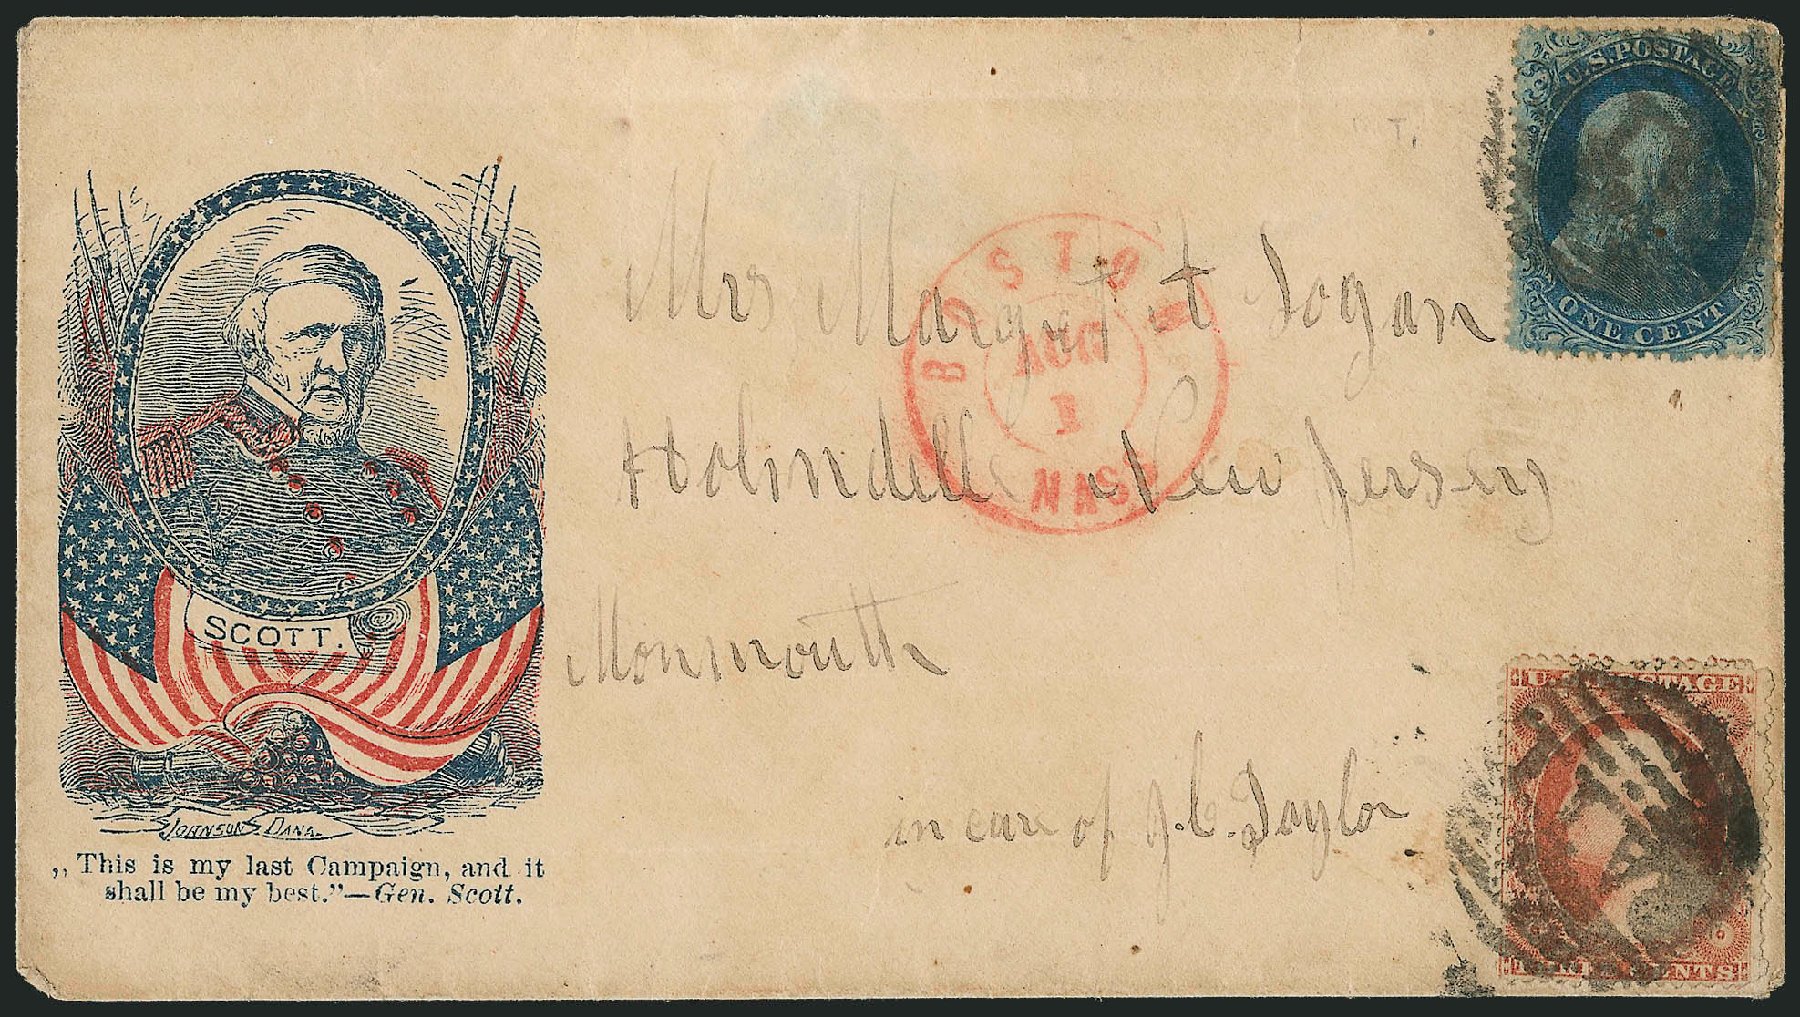 U.S. POSTAGE
ONE CENT
BOSTON
AUG
1
MASS
Mrs Margret it Logan
Holmdelle New Jersey
Monmouth
in care of J. C. Taylor
SCOTT.
JOHNSON & DANA.
„This is my last Campaign, and it
shall be my best.”—Gen. Scott.
U.S. POSTAGE
THREE CENTS